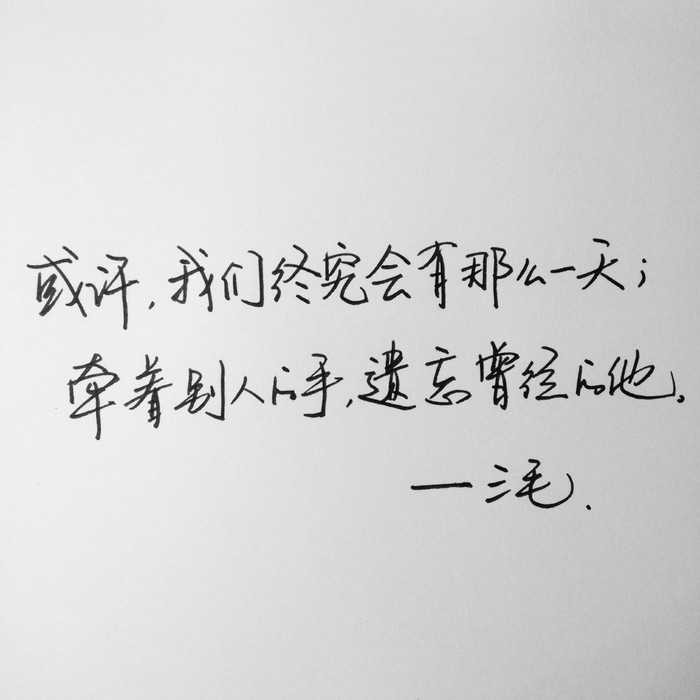 或许，我们终究会有那么一天；
牵着别人的手，遗忘曾经的他。
— 三毛.